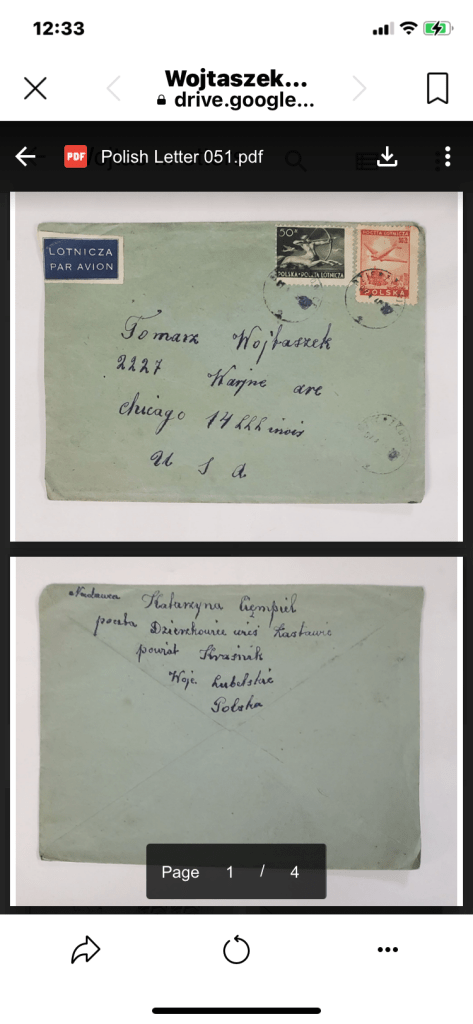 12:33
Wojtaszek...
drive.google...
PDF Polish Letter 051.pdf
LOTNICZA
PAR AVION
50
POLSKA • POCZTA LOTNICZA
POCZTA LOTNICZA
POLSKA
Tomasz Wojtaszek
2227 Wayne are
Chicago 14 LLLinois
U S A
Nadawca Katarzyna Ciempiel
poczta Dzierzkowice wieś Zastawie
powiat Kraśnik
Woje. Lubelskie
Polska
Page 1 / 4